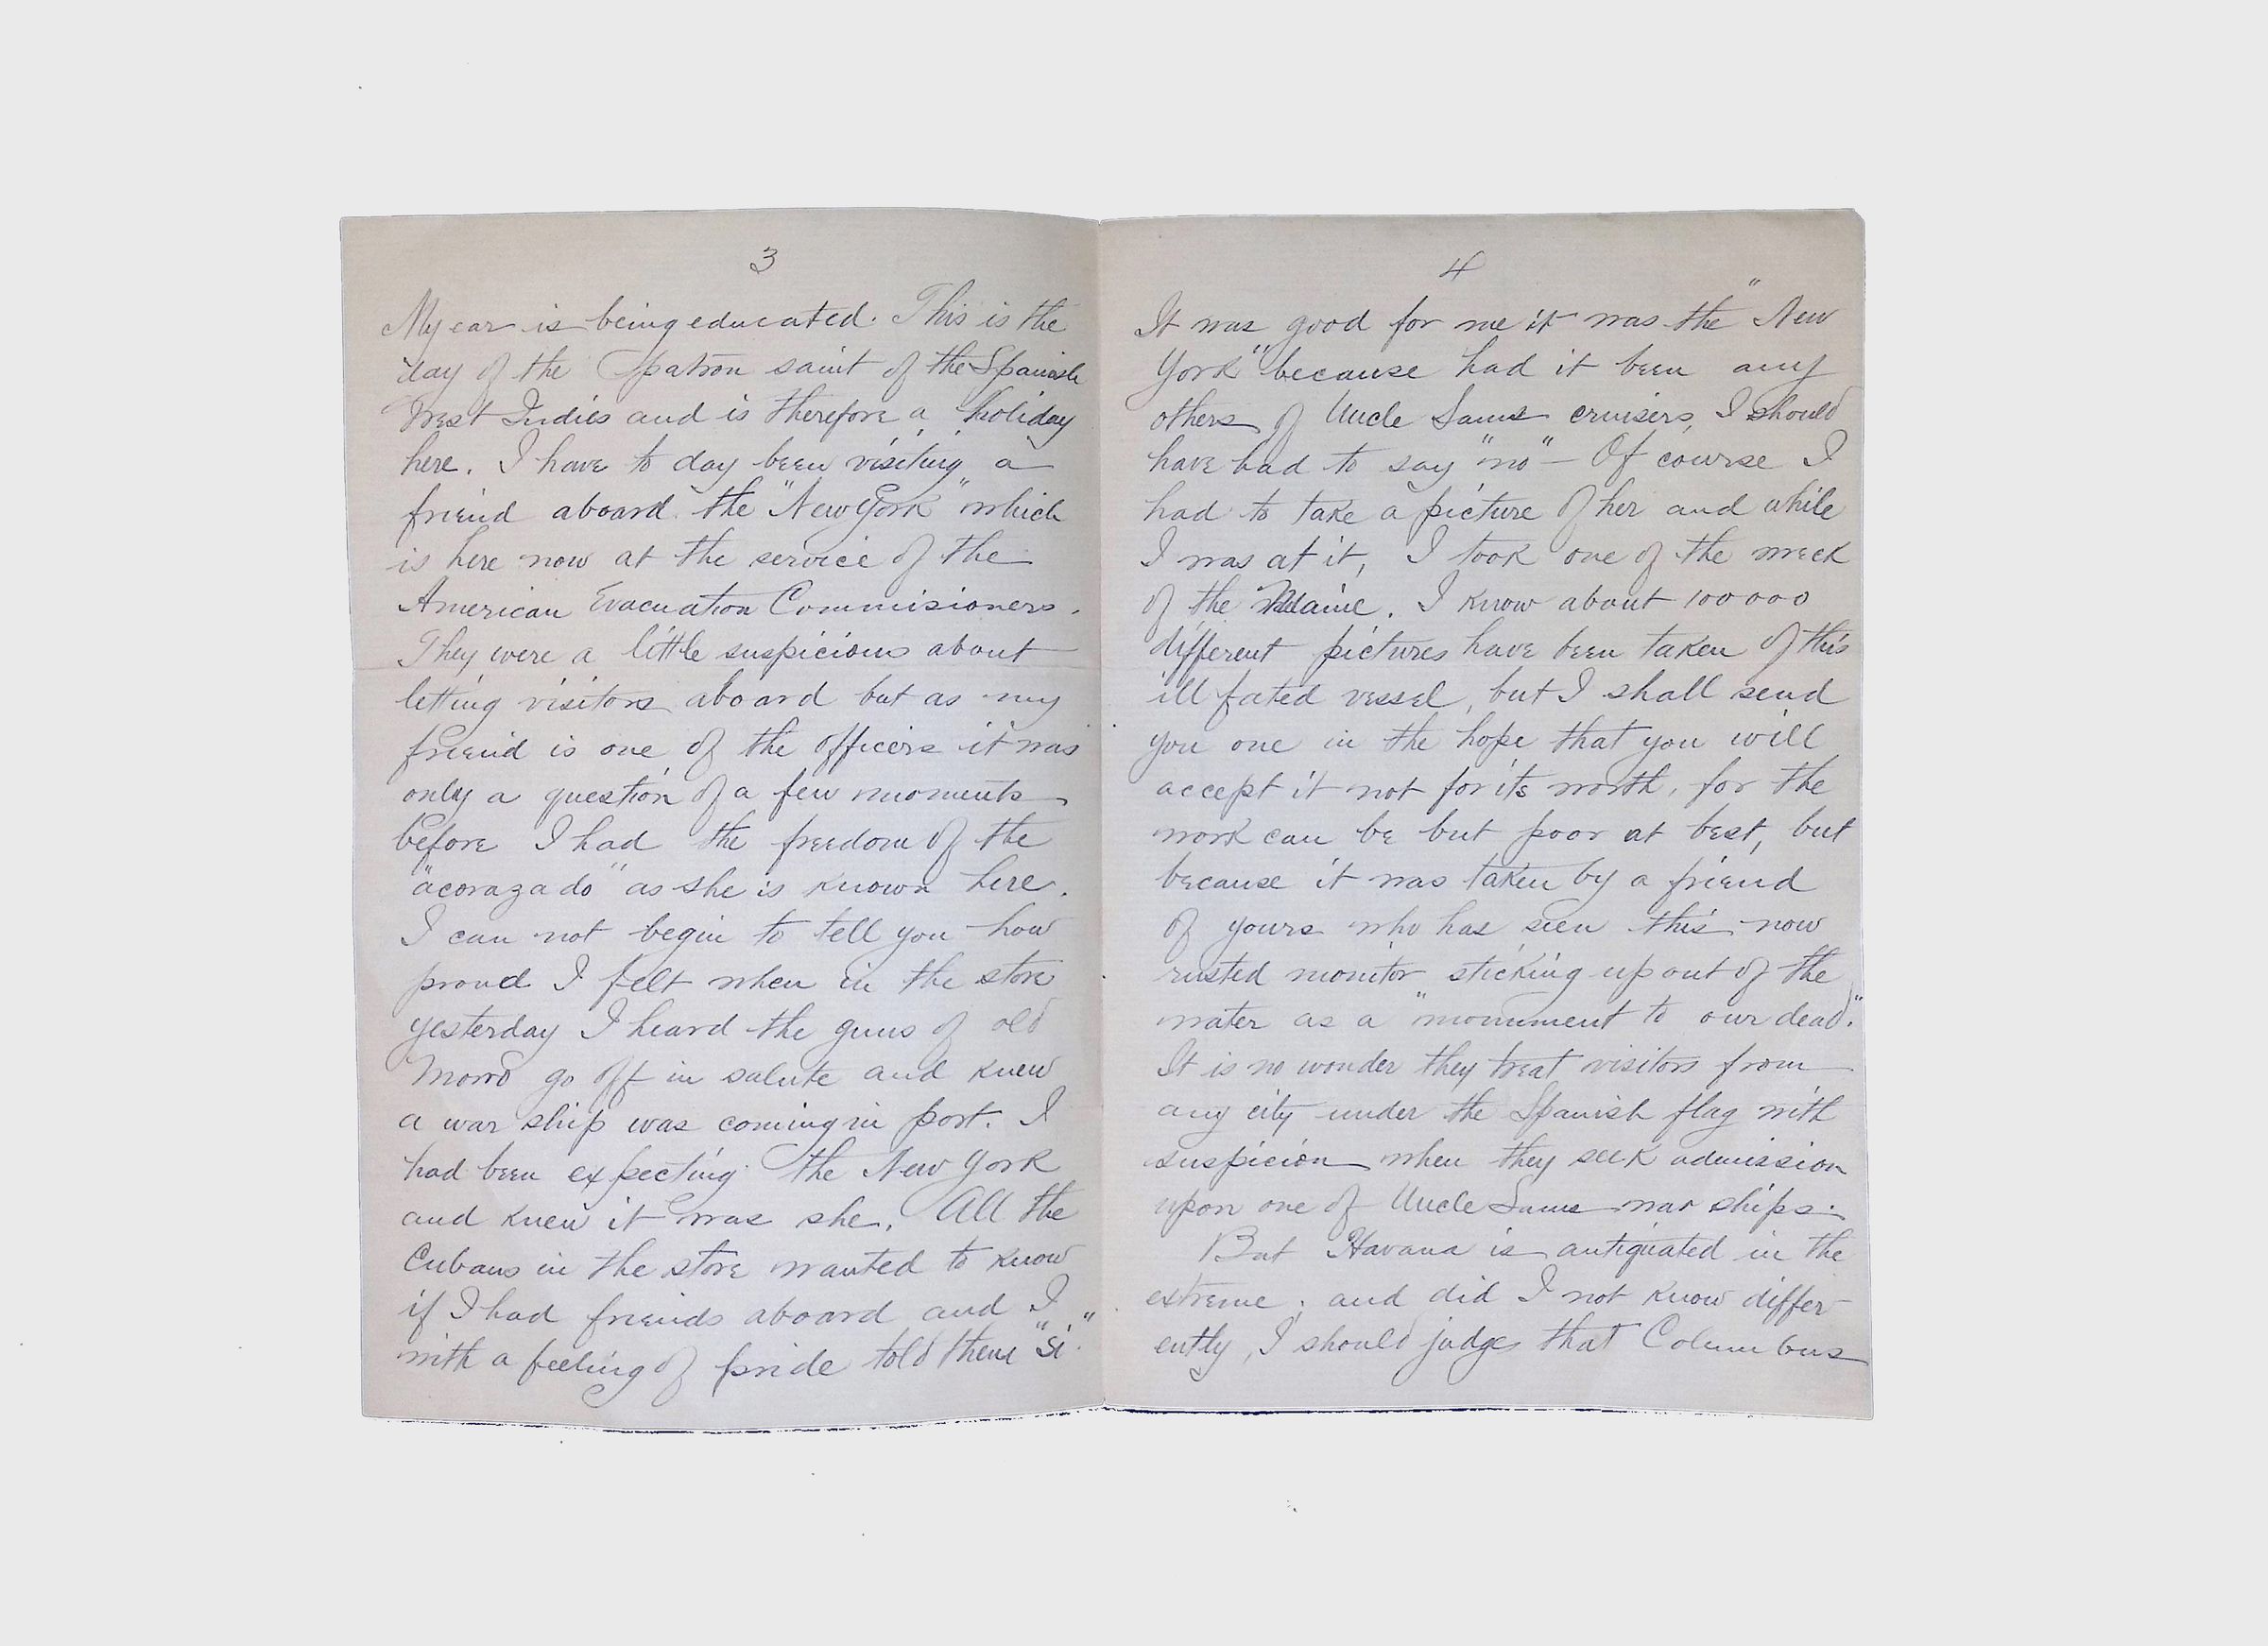 3
My ear is being educated. This is the
day of the patron saint of the Spanish
West Indies and is therefore a holiday
here. I have to day been visiting a
friend aboard the "New York" which
is here now at the service of the
American Evacuation Commisioners.
They were a little suspicious about
letting visitors aboard but as my
friend is one of the officers it was
only a question of a few moments
before I had the freedom of the
"acorazado" as she is known here.
I can not begin to tell you how
proud I felt when in the store
yesterday I heard the guns of old
Morro go off in salute and knew
a war ship was coming in port. I
had been expecting the New York
and knew it was she. All the
Cubans in the store wanted to know
if I had friends aboard and I
with a feeling of pride told them "si".
4
It was good for me it was the "New
York" because had it been any
others of Uncle Sams cruisers, I should
have had to say "no" – Of course I
had to take a picture of her and while
I was at it, I took one of the wreck
of the Maine. I know about 100000
different pictures have been taken of this
ill fated vessel, but I shall send
you one in the hope that you will
accept it not for its worth, for the
work can be but poor at best, but
because it was taken by a friend
of yours who has seen this now
rusted monitor sticking up out of the
water as a "monument to our dead."
It is no wonder they treat visitors from
any city under the Spanish flag with
suspicion when they seek admission
upon one of Uncle Sams war ships.
But Havana is antiquated in the
extreme; and did I not know differ-
ently, I should judge that Columbus